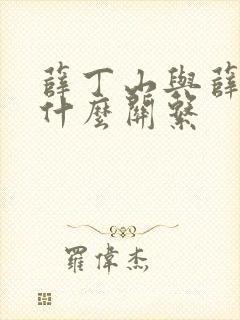 薛丁山與薛
什麼關系
羅偉杰